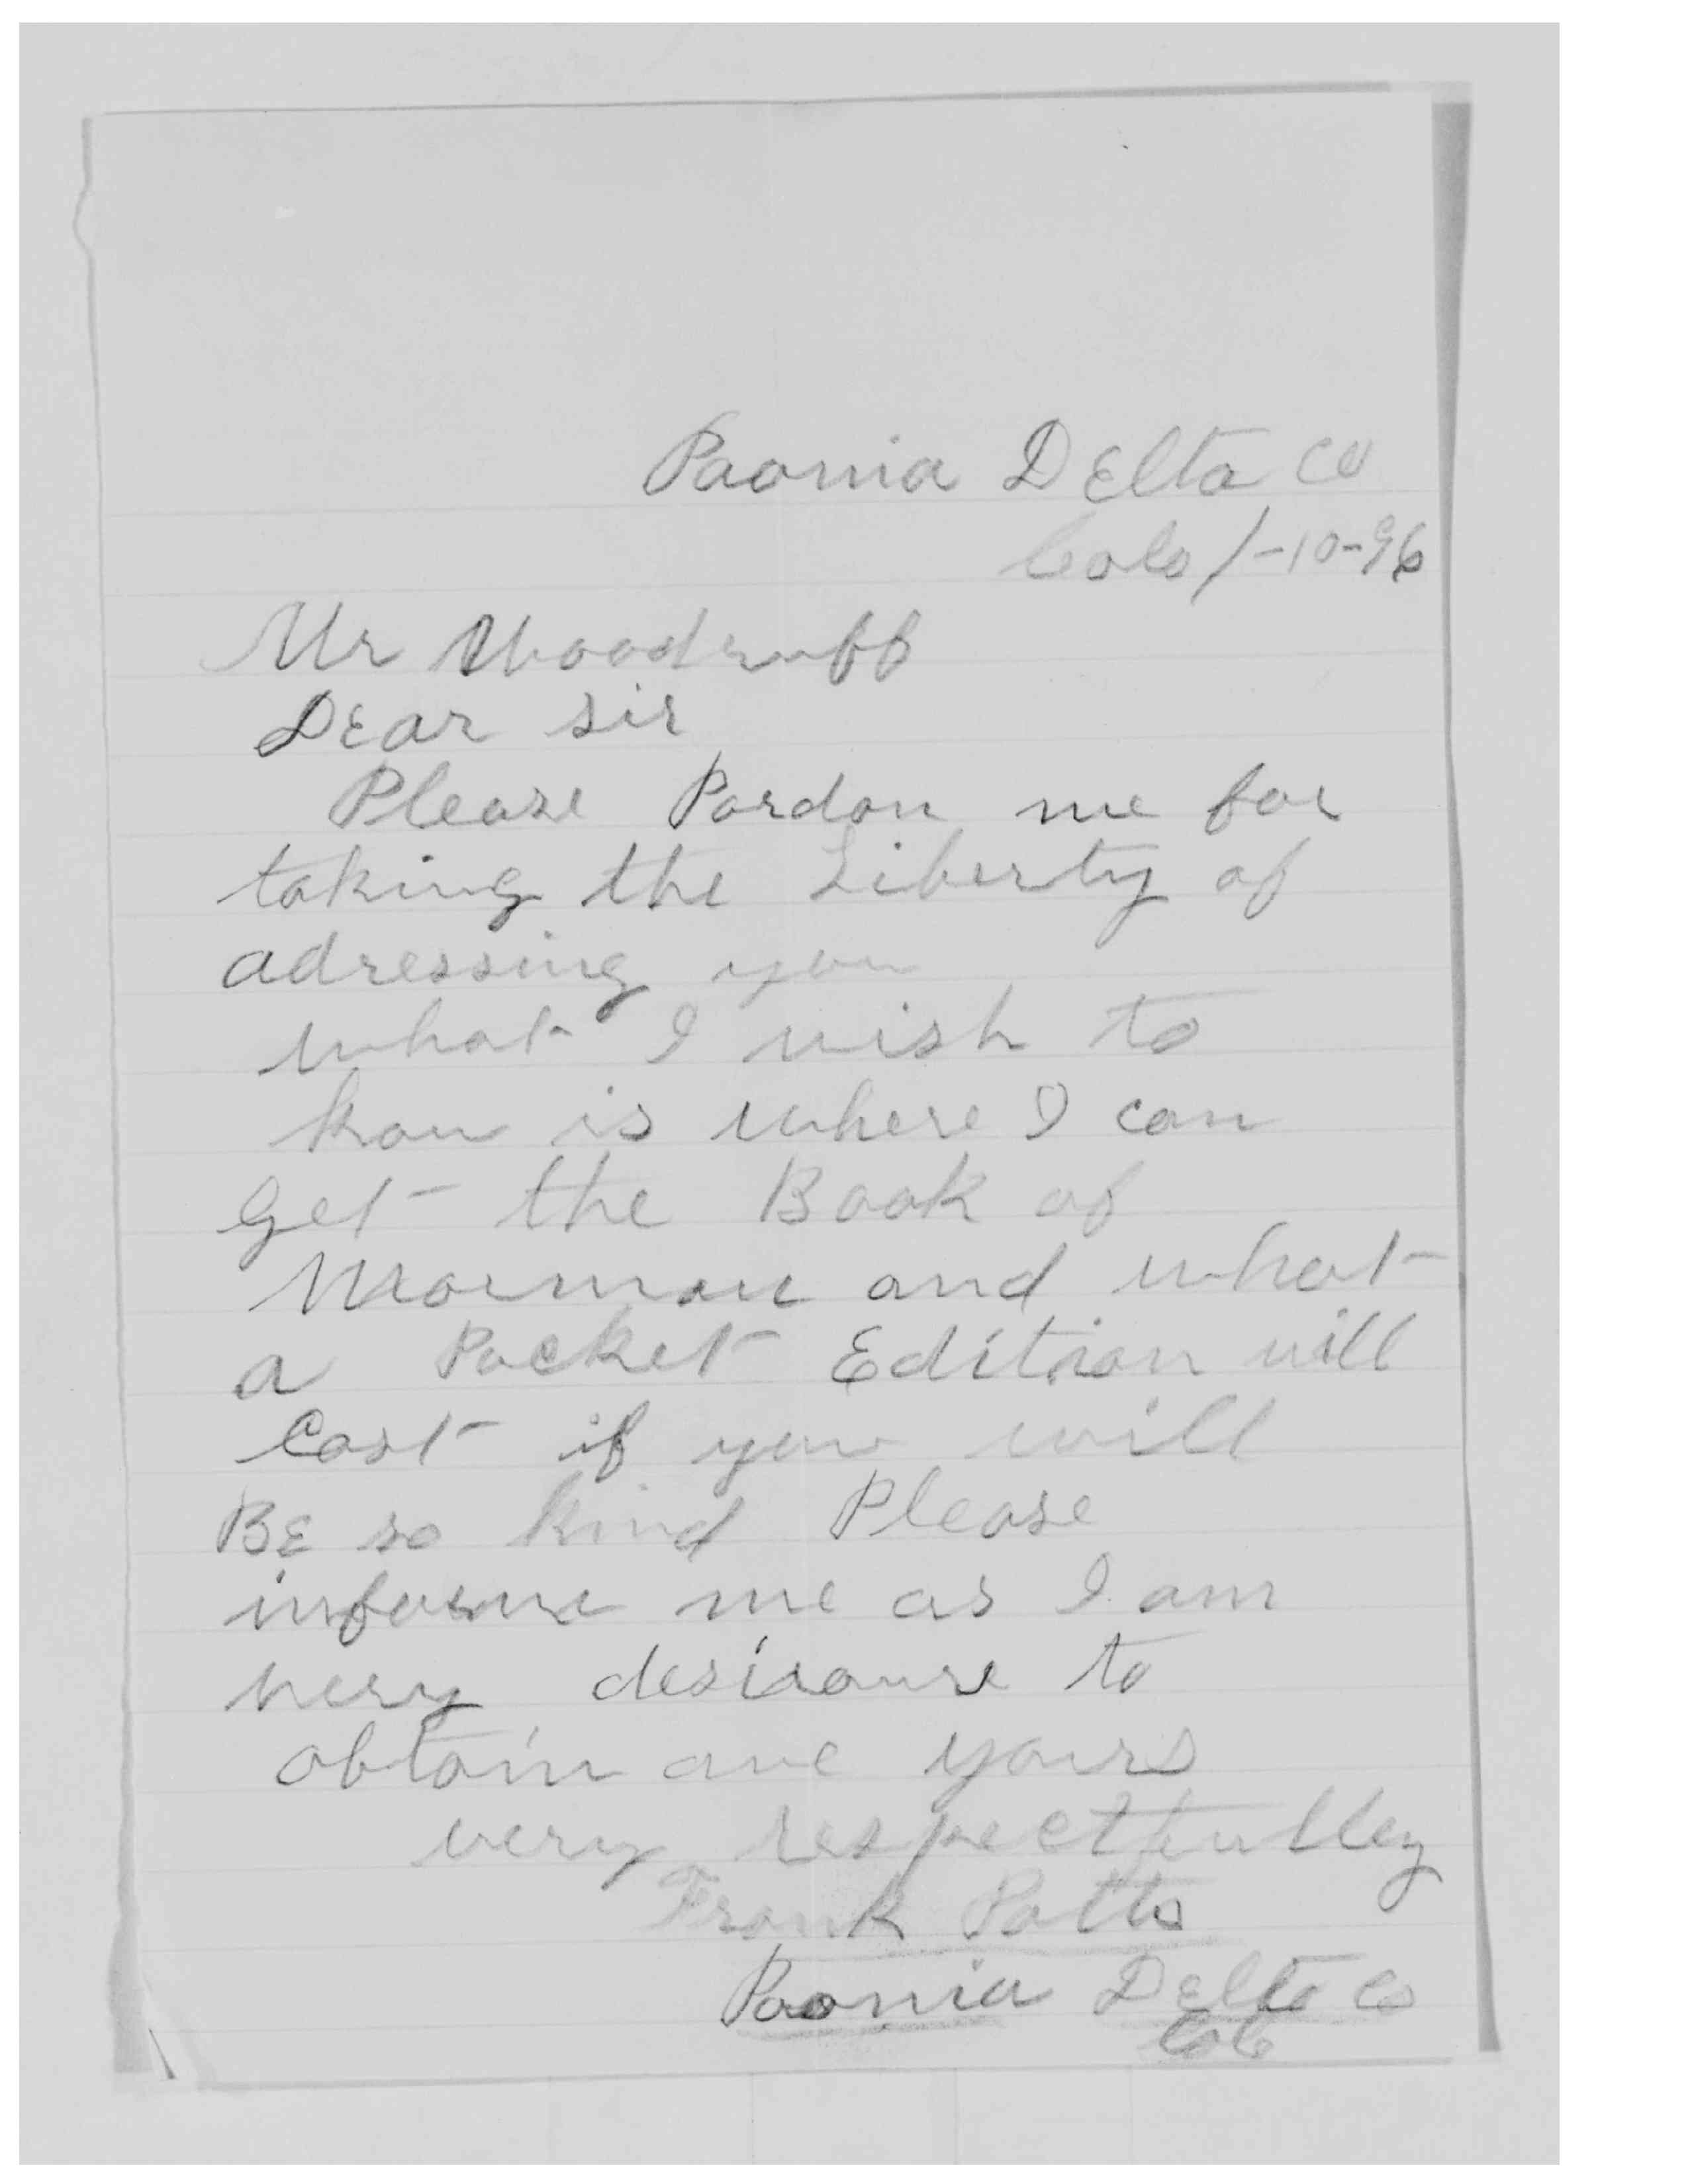 Paonia Delta Co
Colo 1-10-96
Mr Woodruff
Dear Sir
Please Pardon me for
taking the Liberty of
adressing you
what I wish to
know is where I can
Get the Book of
Mormon and what
a Pocket Edition will
Cost if you will
BE so kind Please
informe me as I am
very desirouse to
obtain one yours
very respectfulley
Frank Potts
Paonia Delta Co
Colo